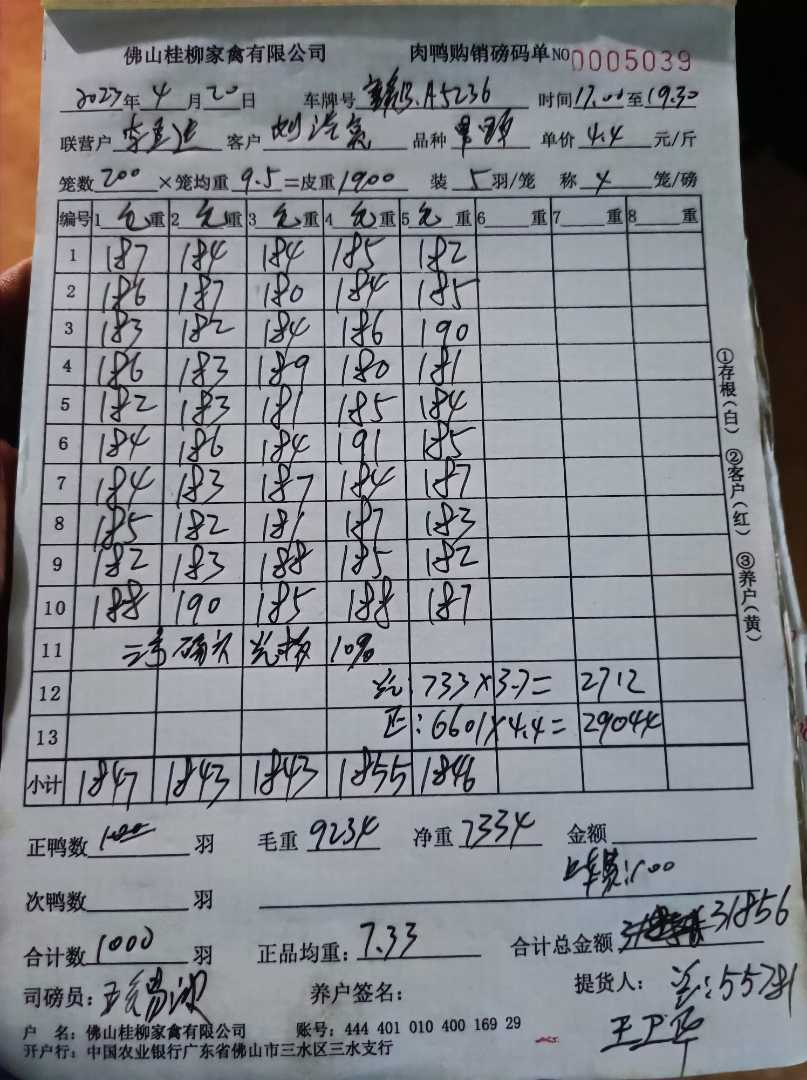 佛山桂柳家禽有限公司 肉鸭购销磅码单 NO 0005039
2023年 4月 20日 车牌号 A5236 时间 17.00 至 19.30
联营户 客户 品种 单价 4.4 元/斤
笼数 200 ×笼均重 9.5 =皮重 1900 装 5 羽/笼 称 4 笼/磅
编号 1 毛重 2 毛重 3 毛重 4 毛重 5 毛重 6 重 7 重 8 重
1 187 184 184 185 182
2 186 187 180 184 185
3 183 182 184 186 190
4 186 183 189 180 181
5 182 183 181 185 184
6 184 186 184 191 185
7 184 183 187 184 187
8 185 182 181 187 183
9 182 183 188 185 182
10 188 190 185 188 187
11 10%
12 733×3.7= 2712
13 正:6601×4.4= 29044
小计 1847 1843 1843 1855 1846
正鸭数 1000 羽 毛重 9234 净重 7334 金额
上车费:100
次鸭数 羽
合计数 1000 羽 正品均重: 7.33 合计总金额 31856
司磅员: 养户签名: 提货人: 55781
户 名: 佛山桂柳家禽有限公司 账号: 444 401 010 400 169 29
开户行: 中国农业银行广东省佛山市三水区三水支行
①存根(白) ②客户(红) ③养户(黄)